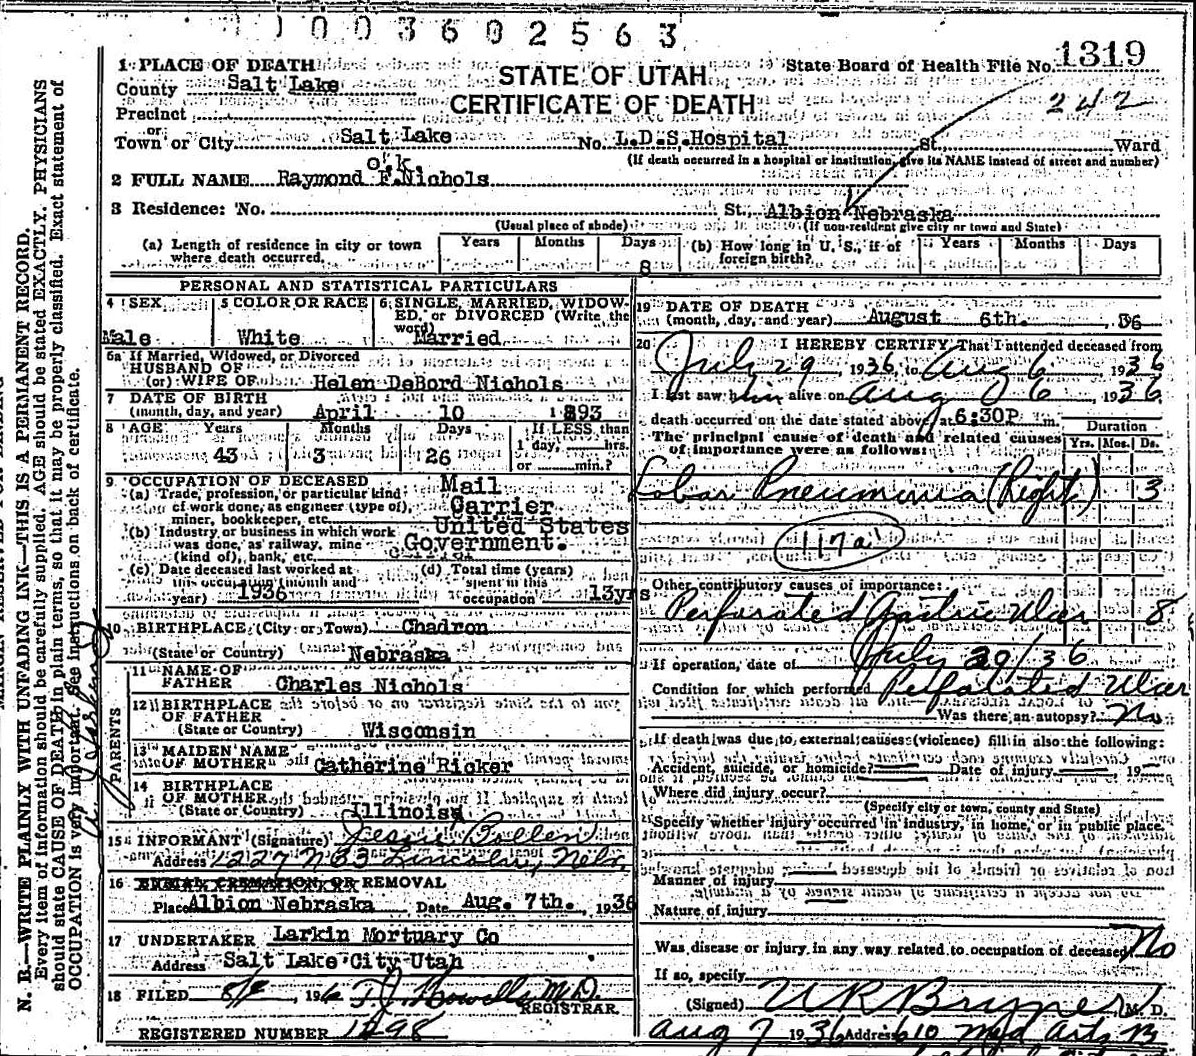 1003602563
1319
1 PLACE OF DEATH
State Board of Health File No.
STATE OF UTAH
County Salt Lake
CERTIFICATE OF DEATH
242
Precinct
or
Town or City Salt Lake No. L.D.S.Hospital St., Ward
(If death occurred in a hospital or institution, give its NAME instead of street and number)
o.k.
2 FULL NAME Raymond F.Nichols
3 Residence: No. St., Albion Nebraska
(Usual place of abode) (If non-resident give city or town and State)
(a) Length of residence in city or town where death occurred. Years Months Days 8
(b) How long in U. S., if of foreign birth? Years Months Days
PERSONAL AND STATISTICAL PARTICULARS
4 SEX Male
5 COLOR OR RACE White
6 SINGLE, MARRIED, WIDOW-
ED, or DIVORCED (Write the
word) Married
6a If Married, Widowed, or Divorced
HUSBAND OF
(or) WIFE OF Helen DeBord Nichols
7 DATE OF BIRTH
(month, day, and year) April 10 1893
8 AGE Years Months Days If LESS than
1 day, hrs.
43 3 26 or min.?
9 OCCUPATION OF DECEASED
(a) Trade, profession, or particular kind
of work done, as engineer (type of),
miner, bookkeeper, etc. Mail Carrier
(b) Industry or business in which work
was done, as railway, mine
(kind of), bank, etc. United States Government.
(c) Date deceased last worked at
this occupation (month and
year) 1936
(d) Total time (years)
spent in this
occupation 13yrs
10 BIRTHPLACE (City or Town) Chadron
(State or Country) Nebraska
PARENTS
11 NAME OF
FATHER Charles Nichols
12 BIRTHPLACE
OF FATHER
(State or Country) Wisconsin
13 MAIDEN NAME
OF MOTHER Catherine Ricker
14 BIRTHPLACE
OF MOTHER
(State or Country) Illinoiss
15 INFORMANT (Signature) Jessie Bollen
Address 1227 N 33 Lincoln, Nebr.
16 BURIAL CREMATION OR REMOVAL
Place Albion Nebraska Date Aug. 7th. 1936
17 UNDERTAKER Larkin Mortuary Co
Address Salt Lake City Utah
18 FILED 8/8, 1936 T.J. Howells M.D.
REGISTRAR
REGISTERED NUMBER 1298
19 DATE OF DEATH
(month, day, and year) August 6th. , 36
20 I HEREBY CERTIFY, That I attended deceased from
July 29, 1936, to Aug 6, 1936
I last saw him alive on Aug 6, 1936
death occurred on the date stated above, at 6:30P m.
The principal cause of death and related causes
of importance were as follows:
Duration
Yrs. Mos. Ds.
Lobar Pneumonia (Right) 3
117a
Other contributory causes of importance:
Perforated Gastric Ulcer 8
If operation, date of July 29/36
Condition for which performed Perforated Ulcer
Was there an autopsy? No
If death was due to external causes (violence) fill in also the following:
Accident, suicide, or homicide? Date of injury 19
Where did injury occur?
(Specify city or town, county and State)
Specify whether injury occurred in industry, in home, or in public place.
Manner of injury
Nature of injury
Was disease or injury in any way related to occupation of deceased? No
If so, specify
(Signed) U R Bryner M. D.
Aug 7 1936 Address 610 Med Arts B
N. B.—WRITE PLAINLY WITH UNFADING INK—THIS IS A PERMANENT RECORD.
Every item of information should be carefully supplied. AGE should be stated EXACTLY. PHYSICIANS
should state CAUSE OF DEATH in plain terms, so that it may be properly classified. Exact statement of
OCCUPATION is very important. See instructions on back of certificate.